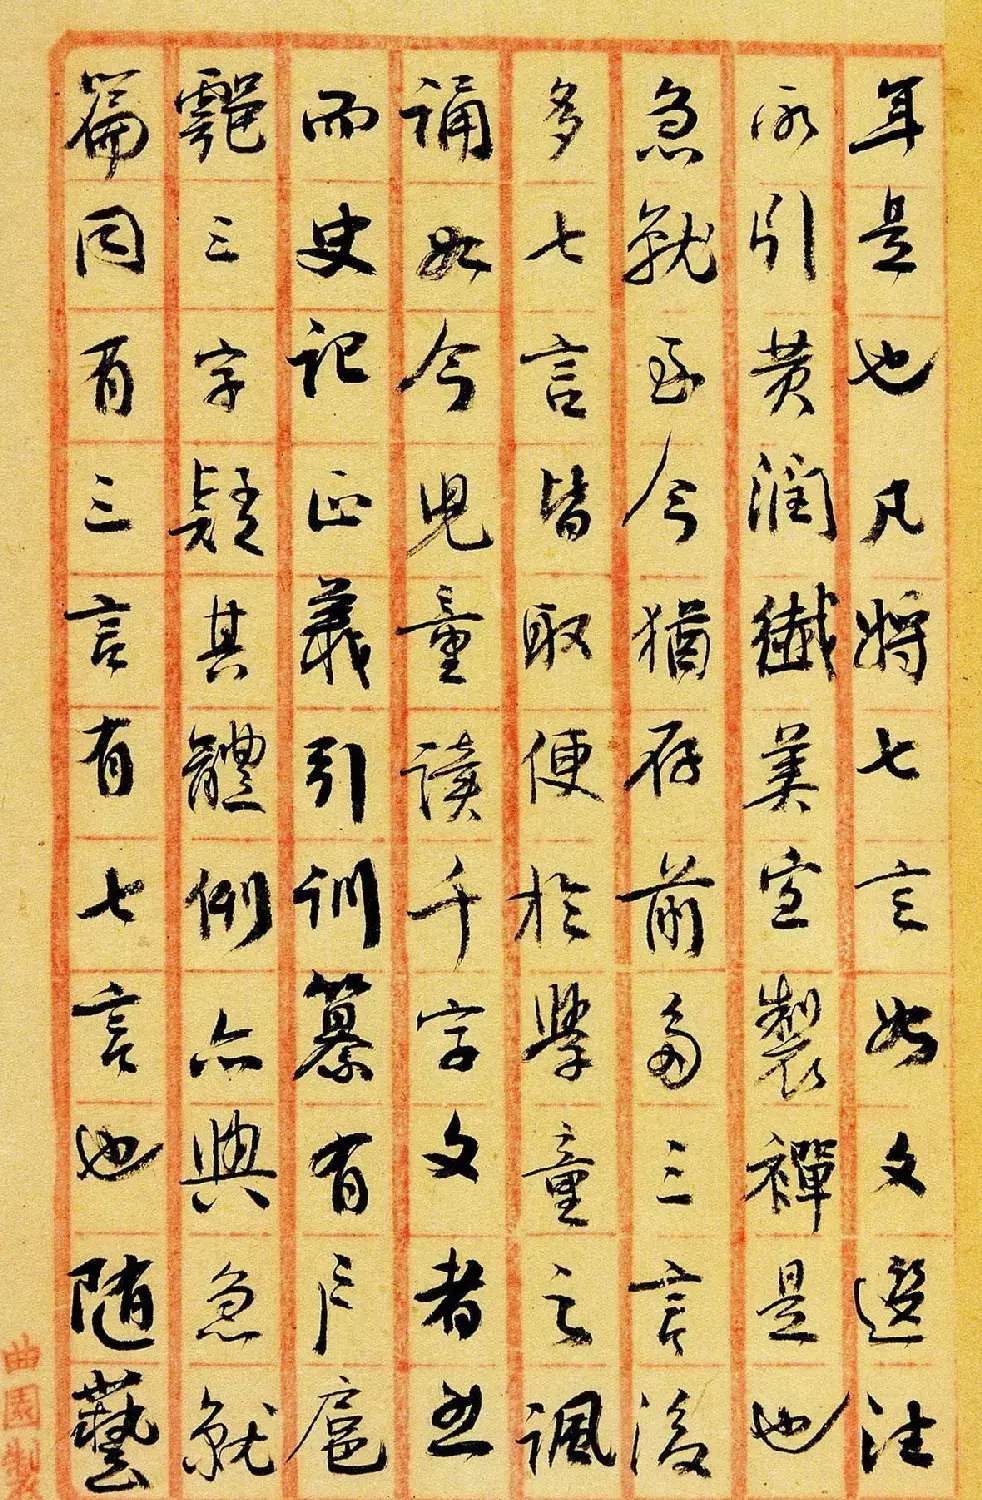 耳是也凡将七言如文選注
所引黄潤纖美宜製襌是也
急就至今猶存前多三言後
多七言皆取便於學童之諷
誦如今兒童讀千字文者然
而史記正義引訓纂有户扈
鄠三字疑其體例亦與急就
篇同有三言有七言也隨藝
曲園製